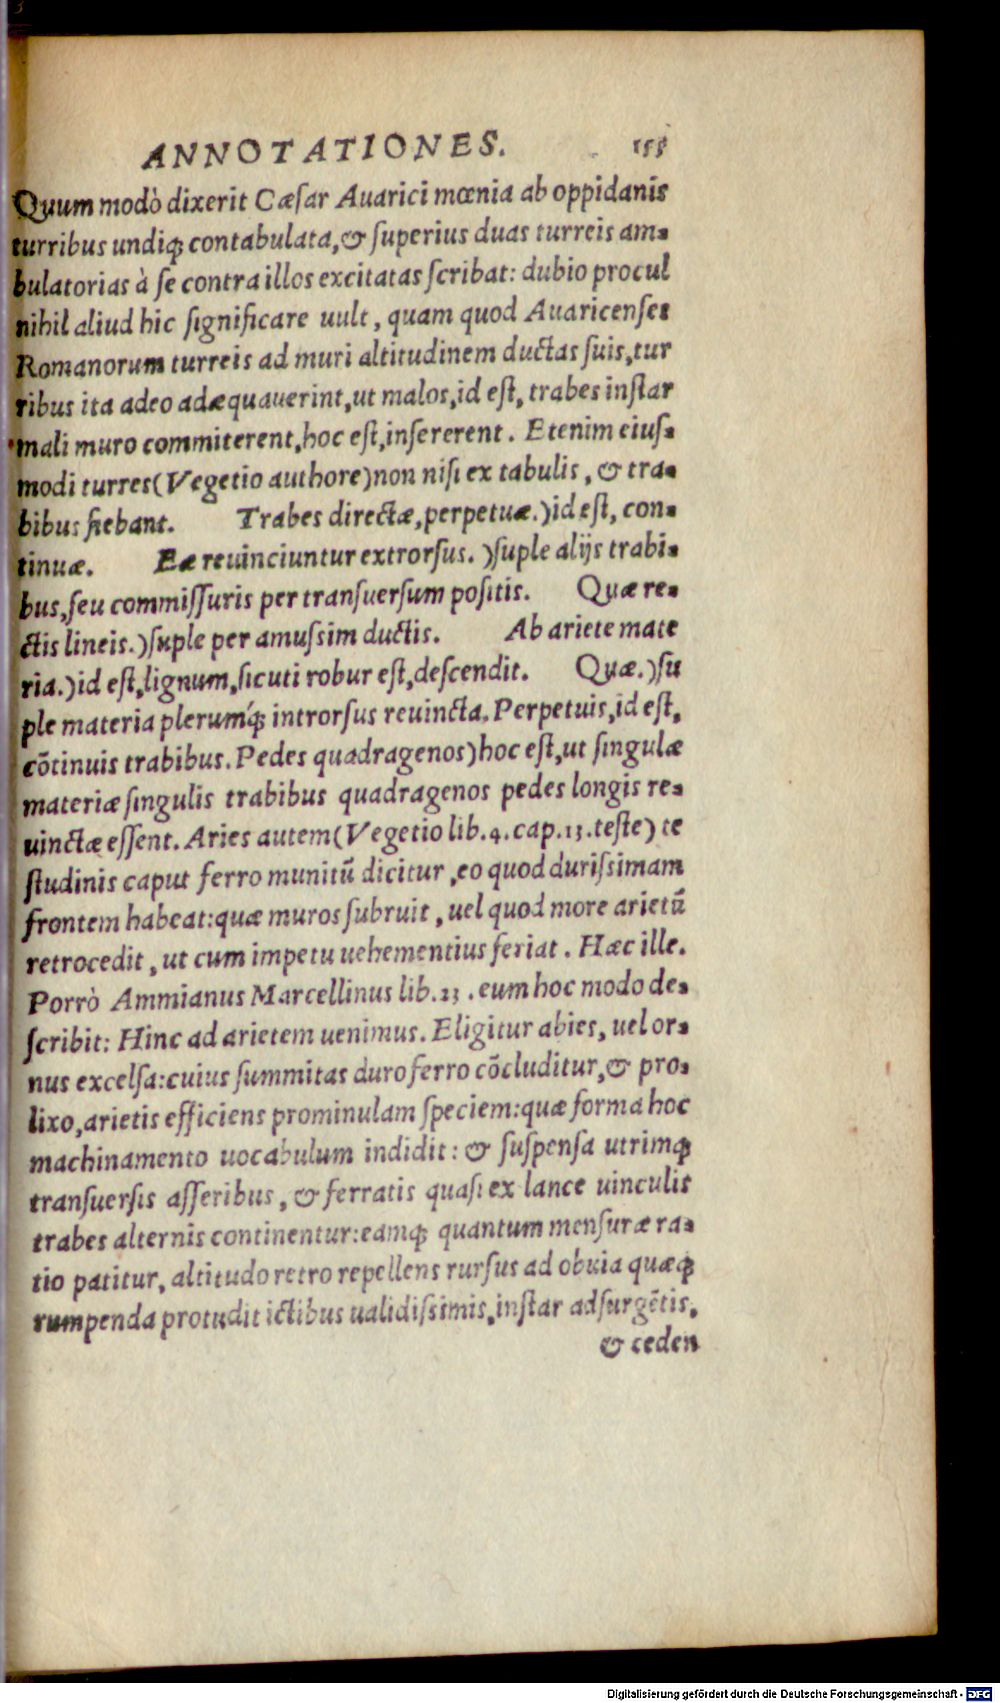 ANNOTATIONES. 155
Quum modò dixerit Cæſar Auarici mœnia ab oppidanis
turribus undiq; contabulata, & ſuperius duas turreis am-
bulatorias à ſe contra illos excitatas ſcribat: dubio procul
nihil aliud hic ſignificare uult, quam quod Auaricenſes
Romanorum turreis ad muri altitudinem ductas ſuis, tur
ribus ita adeo adæquauerint, ut malos, id eſt, trabes inſtar
mali muro commiterent, hoc eſt, inſererent. Etenim eiuſ-
modi turres (Vegetio authore) non niſi ex tabulis, & tra-
bibus fiebant. Trabes directæ, perpetuæ.) id eſt, con-
tinuæ. Eæ reuinciuntur extrorſus.) ſuple alijs trabi-
bus, ſeu commiſſuris per tranſuerſum poſitis. Quæ re-
ctis lineis.) ſuple per amuſsim ductis. Ab ariete mate
ria.) id eſt, lignum, ſicuti robur eſt, deſcendit. Quæ.) ſu
ple materia plerumq́; introrſus reuincta. Perpetuis, id eſt,
cõtinuis trabibus. Pedes quadragenos) hoc eſt, ut ſingulæ
materiæ ſingulis trabibus quadragenos pedes longis re-
uinctæ eſſent. Aries autem (Vegetio lib. 4. cap. 13. teſte) te
ſtudinis caput ferro munitũ dicitur, eo quod duriſsimam
frontem habeat: quæ muros ſubruit, uel quod more arietũ
retrocedit, ut cum impetu uehementius feriat. Hæc ille.
Porrò Ammianus Marcellinus lib. 23. eum hoc modo de-
ſcribit: Hinc ad arietem uenimus. Eligitur abies, uel or-
nus excelſa: cuius ſummitas duro ferro cõcluditur, & pro-
lixo, arietis efficiens prominulam ſpeciem: quæ forma hoc
machinamento uocabulum indidit: & ſuſpenſa utrimq;
tranſuerſis aſſeribus, & ferratis quaſi ex lance uinculis
trabes alternis continentur: eamq; quantum menſuræ ra-
tio patitur, altitudo retro repellens rurſus ad obuia quæq;
rumpenda protudit ictibus ualidiſsimis, inſtar adſurgẽtis,
& ceden
Digitalisierung gefördert durch die Deutsche Forschungsgemeinschaft - DFG